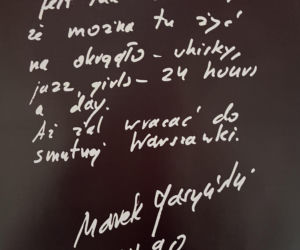 że można tu żyć
na okrągło – whisky,
jazz, girls – 24 hours
a day.
Aż żal wracać do
smutnej Warszawki.
Marek